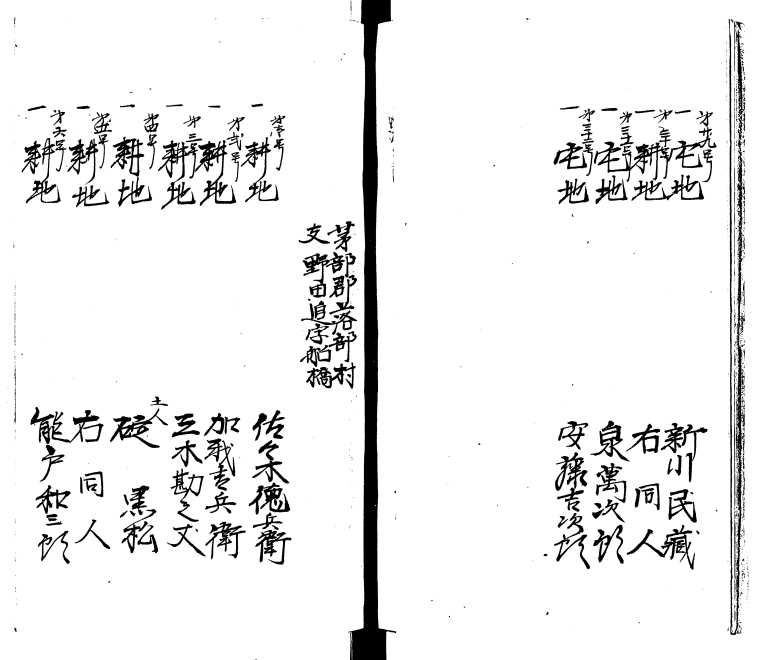 第廿九号
一宅地 新川民蔵
第三十号
一耕地 右同人
第三十一号
一宅地 泉萬次郎
第三十二号
一宅地 安藤吉次郎
茅部郡落部村
支野田追字船橋
第壱号
一耕地 佐々木儀兵衛
第弐号
一耕地 加我吉兵衛
第三号
一耕地 三木勘之丈
第四号
一耕地 土人 黒松
第五号
一耕地 右同人
第六号
一耕地 能戸和三郎